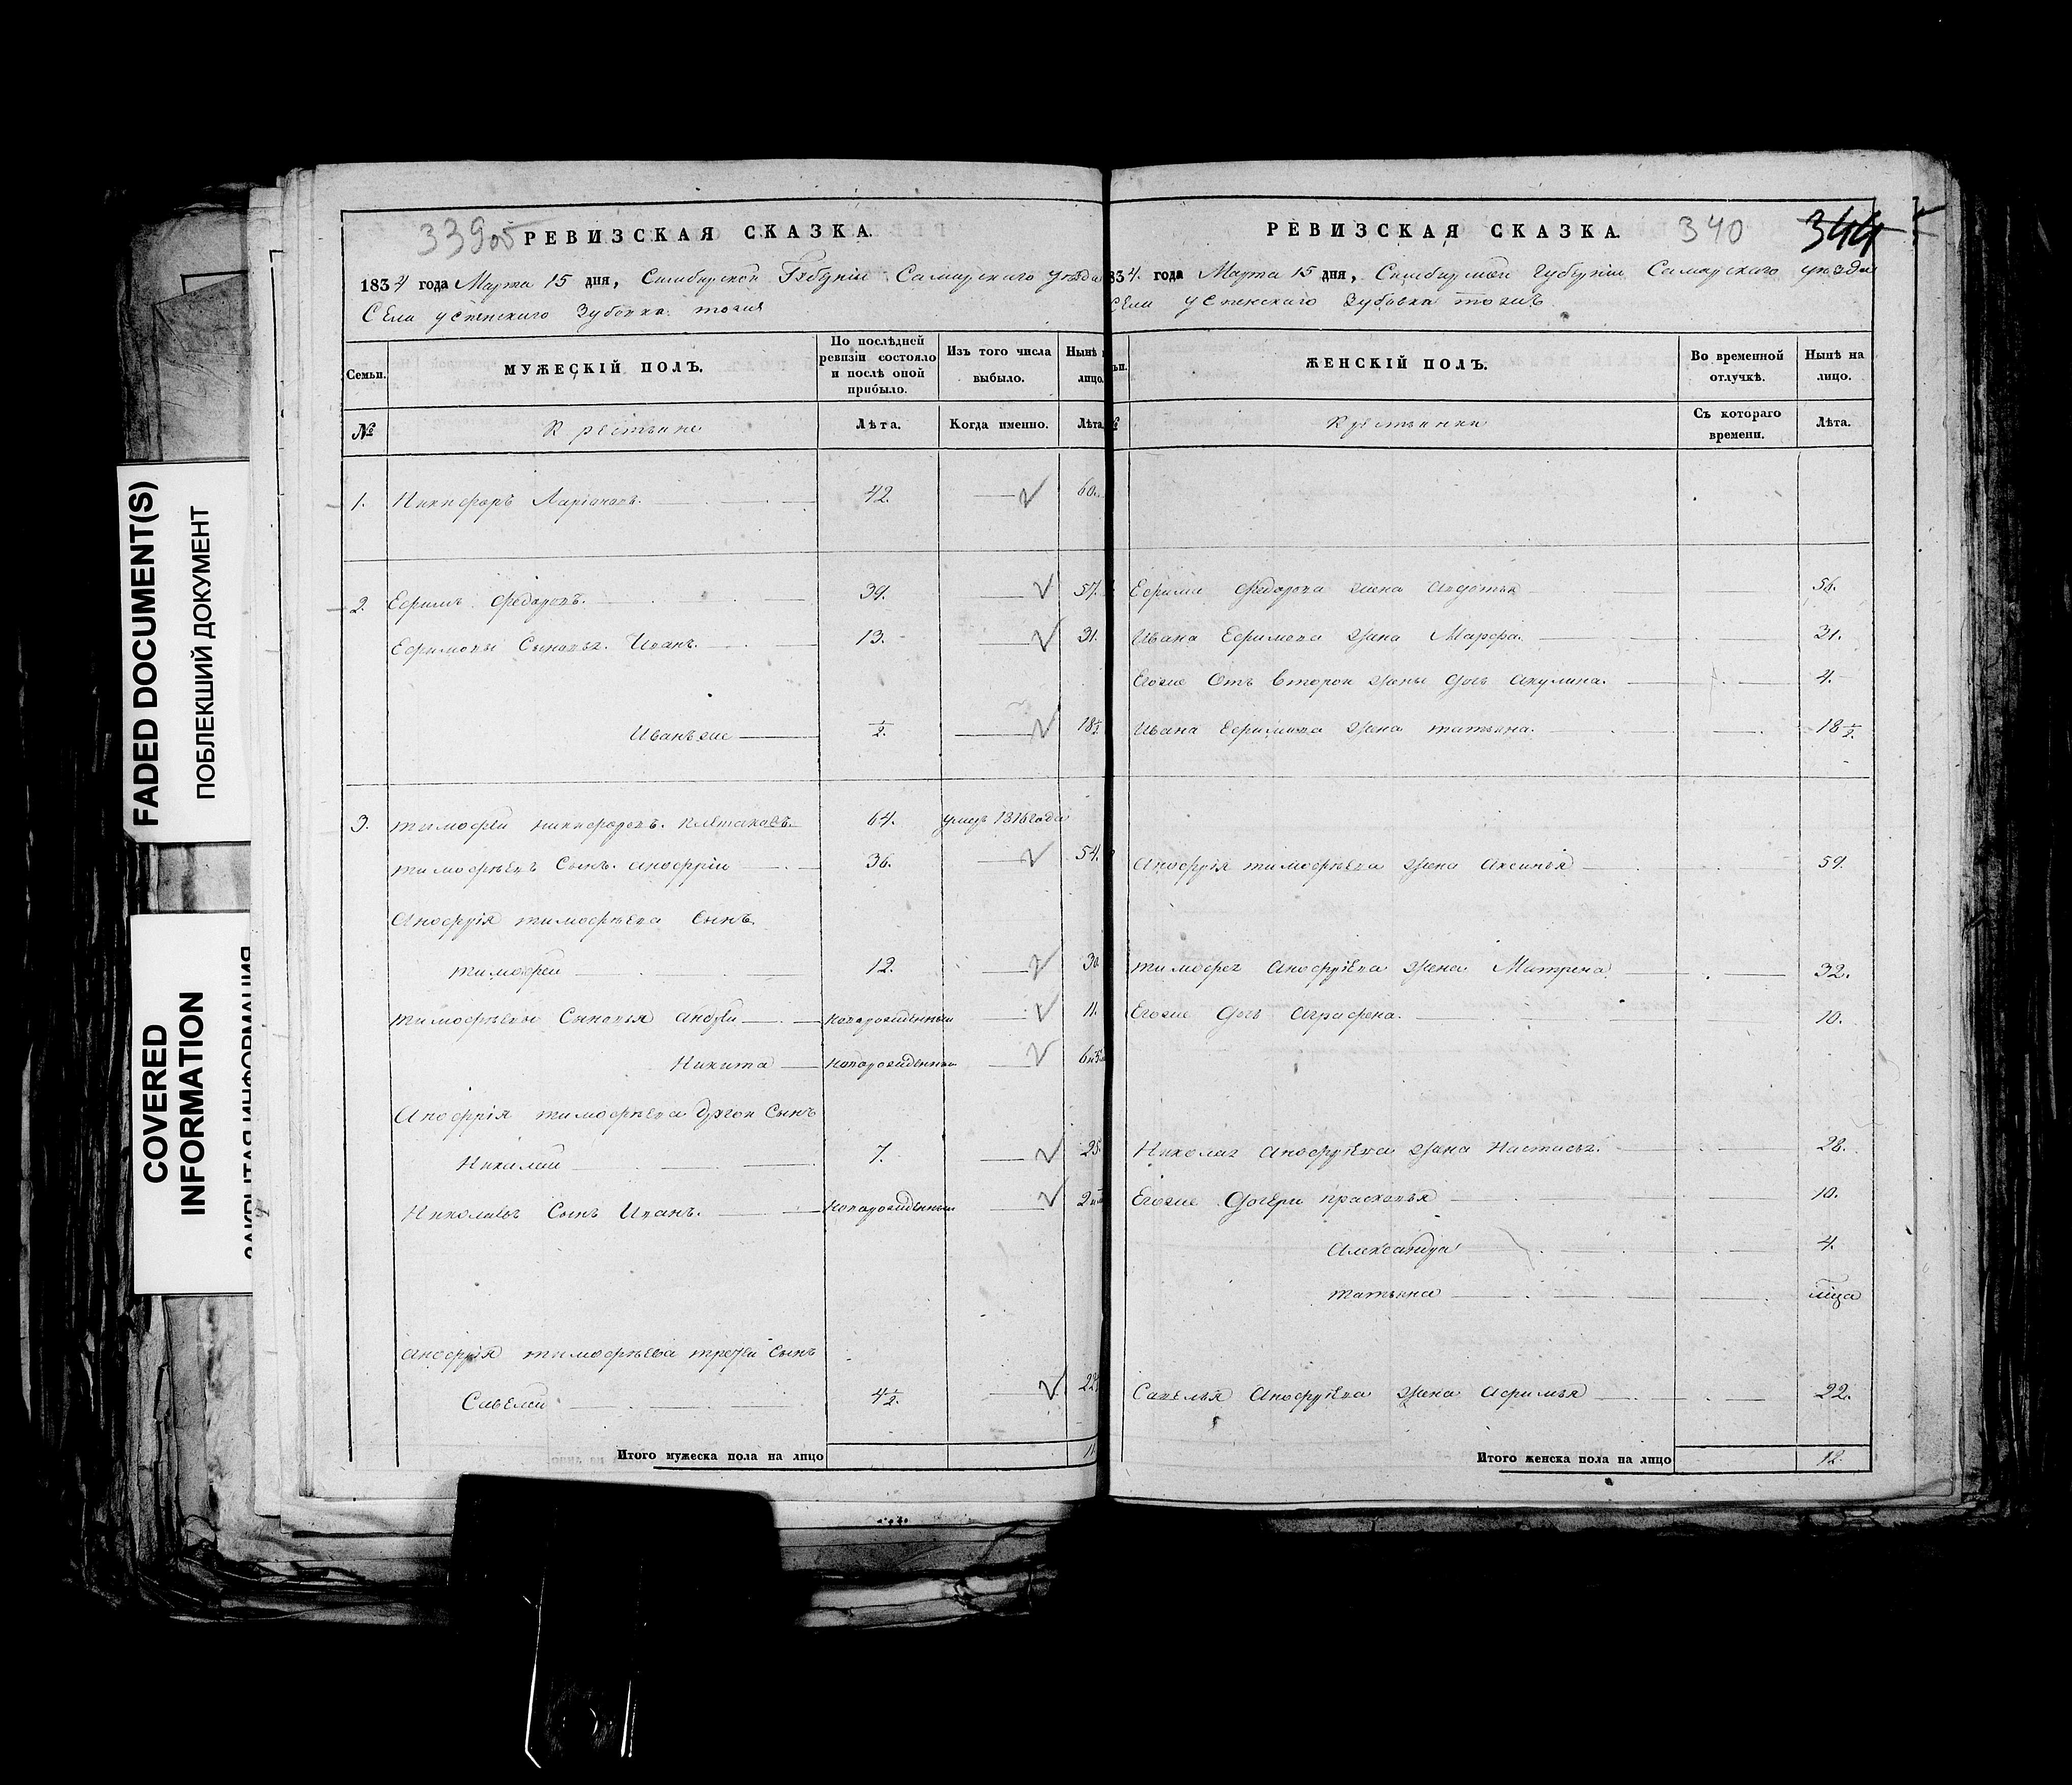 FADED DOCUMENT(S)
ПОБЛЕКШИЙ ДОКУМЕНТ
COVERED INFORMATION
ЗАКРЫТАЯ ИНФОРМАЦИЯ
339об
РЕВИЗСКАЯ СКАЗКА
1834 года Марта 15 дня, Симбирской Губерніи Самарскаго уезда
Села успенскаго Зубовка тогиж
Семьи.
МУЖЕСКІЙ ПОЛЪ.
По послѣдней ревизіи состояло и послѣ оной прибыло.
Изъ того числа выбыло.
Нынѣ лицо.
№
Крестьяне
Лѣта.
Когда именно.
Лѣта.
1. Никифоръ Ларіоновъ. 42. 60.
2. Ефимъ Федоровъ. 39. 57.
Ефимовы Сыновья. Иванъ. 13. 31.
Иванъ же 1/2. 18 1/2
3. тимофѣй никифоровъ. 64. умеръ 1816 года
тимофѣевъ Сынъ. анофрій 36. 54.
Анофрія тимофѣева Сынъ.
тимофѣй 12. 30
тимофѣевы Сыновья андрѣй новорожденный 11.
Никита новорожденный
Анофрія тимофѣева другой Сынъ
Николай 7. 25
Николаевъ Сынъ Иванъ. новорожденный
анофрія тимофѣева третей Сынъ
Савелей 4 1/2. 22
Итого мужеска пола на лицо 11
РЕВИЗСКАЯ СКАЗКА.
340
344
834. года Марта 15 дня, Симбирской Губерніи Самарскаго уезда
Села успенскаго Зубовка тогиж
ЖЕНСКІЙ ПОЛЪ.
Во временной отлучкѣ.
Нынѣ на лицо.
Крестьянки
Съ котораго времени.
Лѣта.
Ефима Федорова жена авдотья 56.
Ивана Ефимова жена Марфа. 31.
Егоже Отъ второй жены дочь акулина. 4.
Ивана Ефимова жена татьяна. 18 1/2.
Анофрія тимофѣева жена Аксинья 59.
тимофея Анофріева жена Матрена 32.
Егоже дочь Аграфена. 10.
Николая Анофріева жена Настасья. 28.
Егоже дочери прасковья 10.
Александра 4.
татьяна
Савелья Анофріева жена Афимья 22.
Итого женска пола на лицо 12